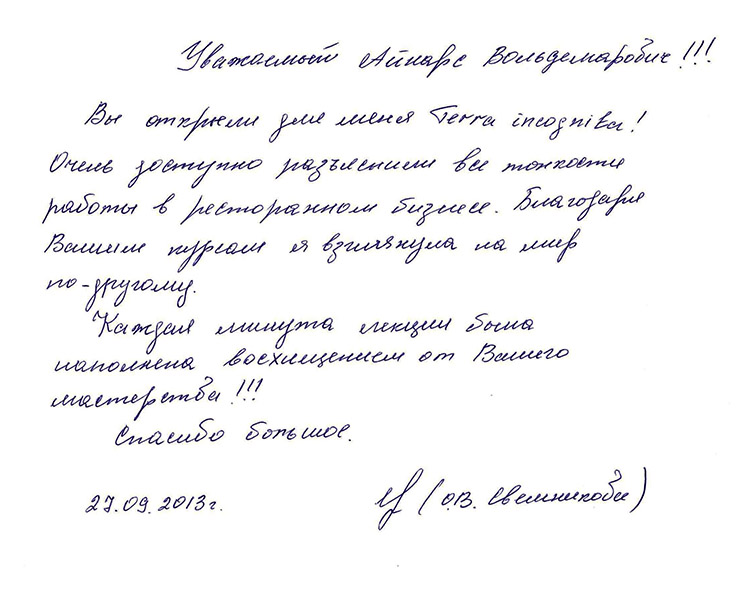 Уважаемый Айнарс Вольдемарович!!!
Вы открыли для меня Terra incognita!
Очень доступно разъяснили все тонкости
работы в ресторанном бизнесе. Благодаря
Вашим курсам я взглянула на мир
по-другому.
Каждая минута лекции была
наполнена восхищением от Вашего
мастерства!!!
Спасибо большое.
27.09.2013г. (О.В.